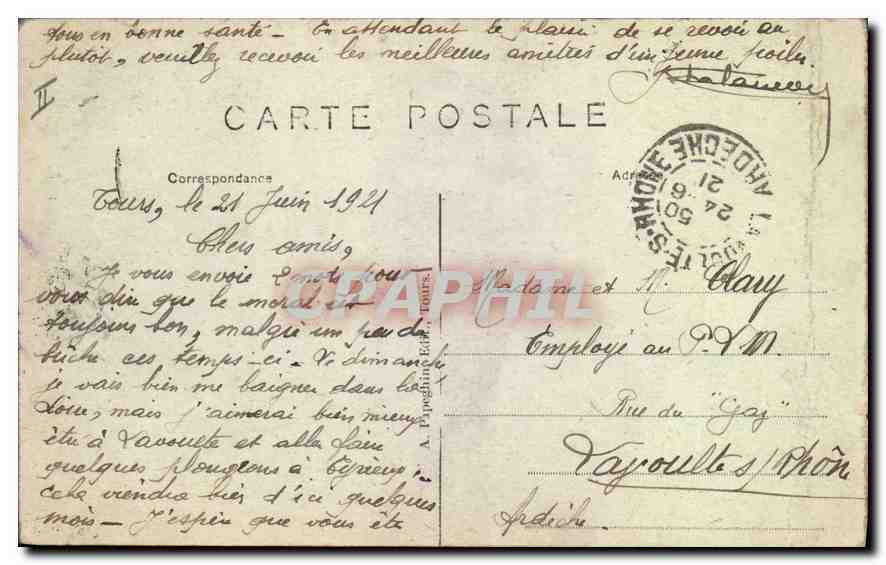 tous en bonne santé - En attendant le plaisir de se revoir au
plutôt, veuillez recevoir les meilleures amitiés d'un jeune poilu
II
CARTE POSTALE
Correspondance
Adresse
Tours, le 21 Juin 1921
Chers amis,
Je vous envoie 2 mots pour
vous dire que le moral est
toujours bon, malgré un peu de
bûche ces temps-ci - Le dimanche
je vais bien me baigner dans la
Loire, mais j'aimerai bien mieux
être à Lavoulte et aller faire
quelques plongeons à
cela viendra bien d'ici quelques
mois - J'espère que vous êtes
A. Papeghin, Edit., Tours.
LA VOULTE-S-RHONE ARDECHE
50
24-6
21
Madame et M. Clary
Employé au P.L.M.
Rue du "Gaz"
Lavoulte s/Rhône
Ardèche.
CPAPHIL